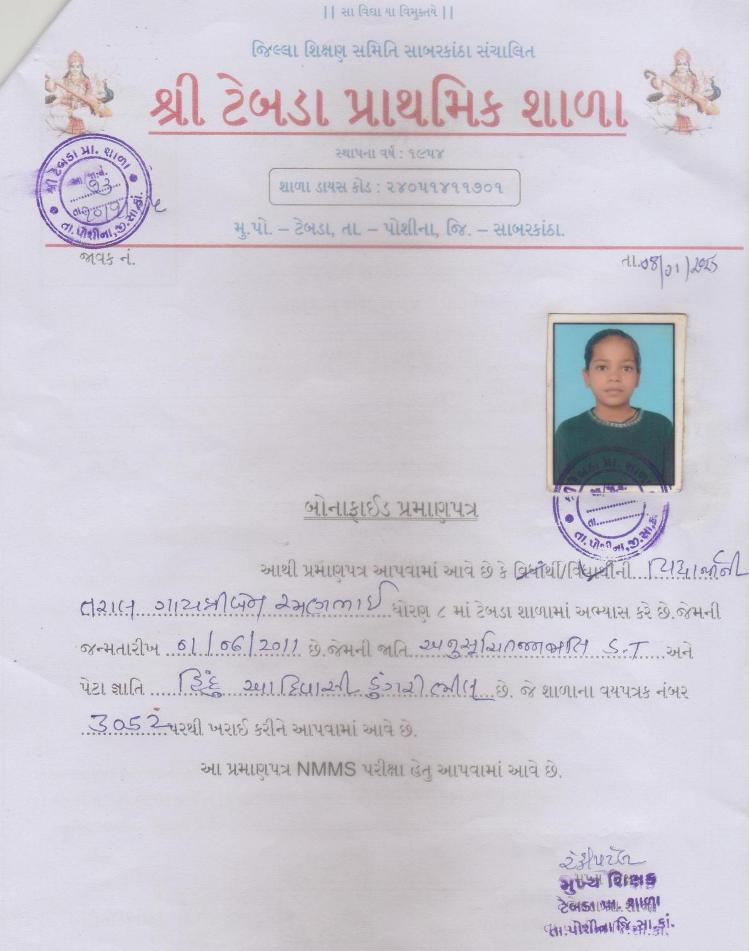 || સા વિદ્યા યા વિમુક્તયે ||
જિલ્લા શિક્ષણ સમિતિ સાબરકાંઠા સંચાલિત
શ્રી ટેબડા પ્રાથમિક શાળા
સ્થાપના વર્ષ : ૧૯૫૪
શાળા ડાયસ કોડ : ૨૪૦૫૧૪૧૧૭૦૧
મુ.પો. – ટેબડા, તા. – પોશીના, જિ. – સાબરકાંઠા.
શ્રી ટેબડા પ્રા. શાળા
તા.પોશીના,જી.સા.કાં.
જાવક નં.
તા.
બોનાફાઈડ પ્રમાણપત્ર
આથી પ્રમાણપત્ર આપવામાં આવે છે કે વિદ્યાર્થી/વિદ્યાર્થીની
તરાલ ગાયત્રીબેન રમણભાઈ ધોરણ ૮ માં ટેબડા શાળામાં અભ્યાસ કરે છે.જેમની
જન્મતારીખ 01/06/2011 છે.જેમની જાતિ S.T અને
પેટા જ્ઞાતિ હિંદુ આદિવાસી ડુંગરી ભીલ છે. જે શાળાના વયપત્રક નંબર
3052 પરથી ખરાઈ કરીને આપવામાં આવે છે.
આ પ્રમાણપત્ર NMMS પરીક્ષા હેતુ આપવામાં આવે છે.
મુખ્ય શિક્ષક
ટેબડા પ્રા. શાળા
તા.પોશીના,જિ.સા.કાં.